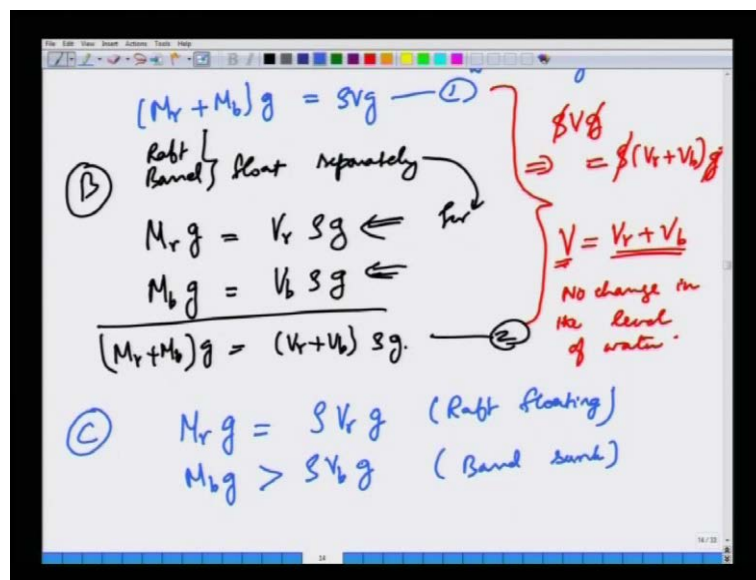 File Edit View Insert Actions Tools Help
(Mr + Mb) g = ρVg — ①
Ⓑ Raft
Barrel } float separately
Mr g = Vr ρ g ⇐ for
Mb g = Vb ρ g ⇐
(Mr+Mb) g = (Vr+Vb) ρ g. — ②
ρVg
⇒ = ρ(Vr+Vb)g
V = Vr + Vb
No change in
the level
of water.
Ⓒ Mr g = ρ Vr g (Raft floating)
Mb g > ρ Vb g (Barrel sunk)
14